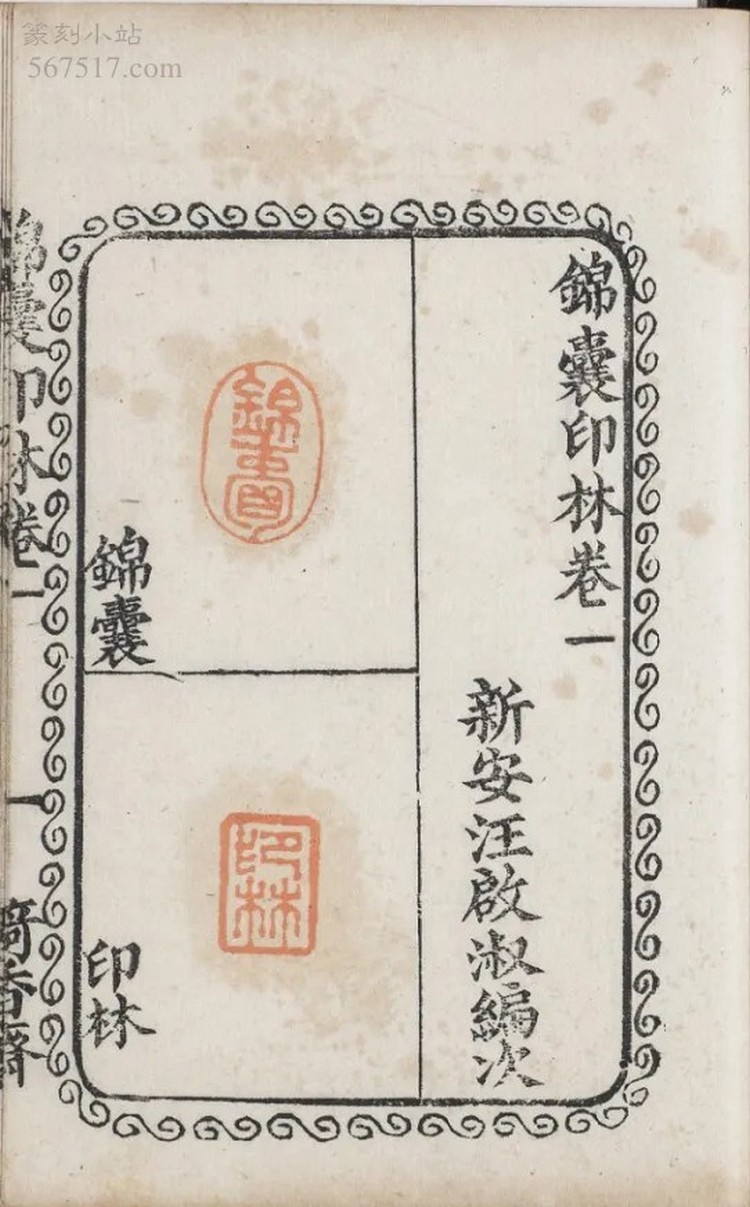 篆刻小站
567517.com
錦囊印林卷一
新安汪啟淑編次
錦囊
錦囊
印林
印林
錦囊印林卷一
一
香齋